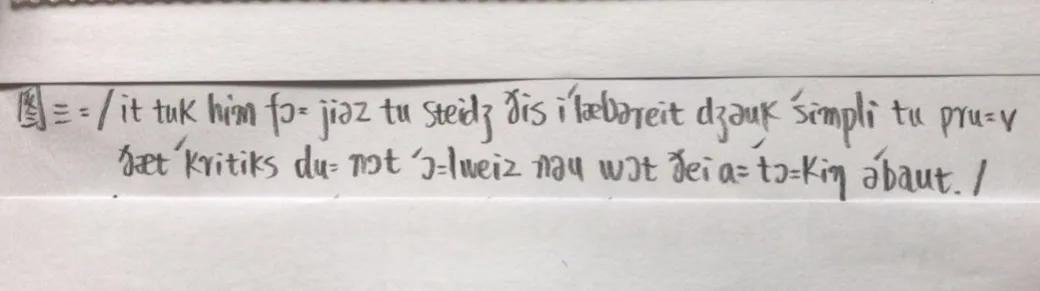 图三=/it tuk him fɔ= jiəz tu steidʒ ðis i'læbəreit dʒəuk 'simpli tu pru=v
ðæt 'kritiks du= nɔt 'ɔ=lweiz nəu wɔt ðei a= 'tɔ=kiŋ ə'baut. /